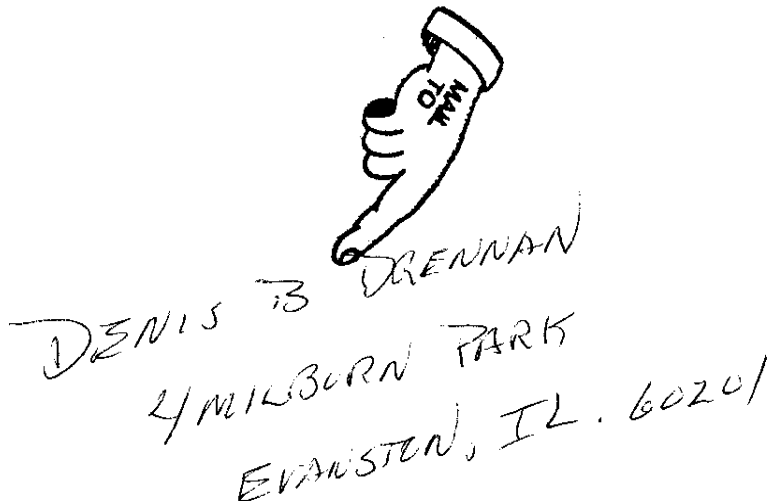 MAIL
TO
DENIS B DRENNAN
4 MILBURN PARK
EVANSTON, IL. 60201